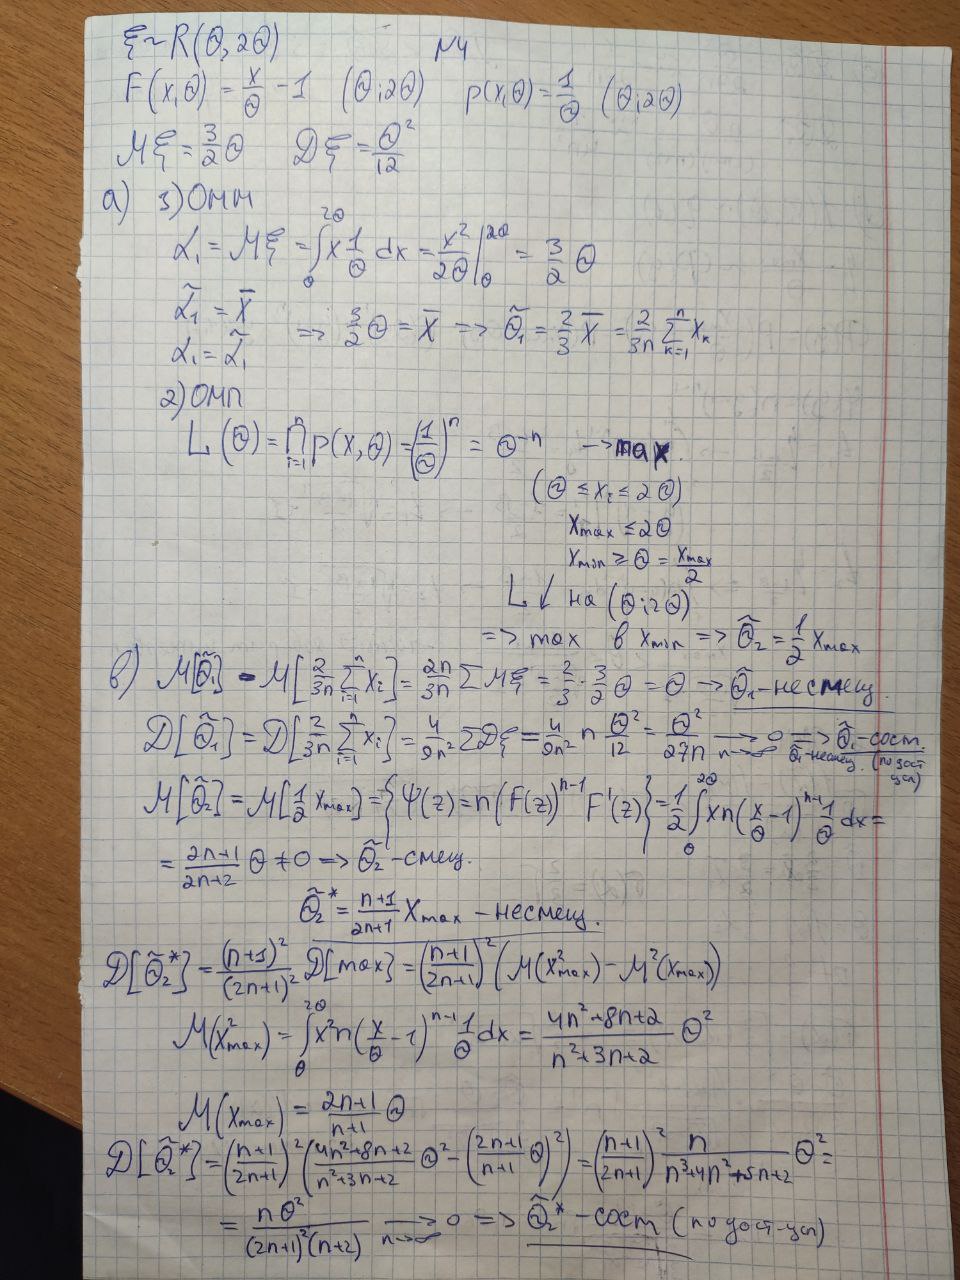 ξ~R(Θ, 2Θ) N4
F(x,Θ) = x/Θ - 1 (Θ; 2Θ) p(x,Θ) = 1/Θ (Θ; 2Θ)
Mξ = 3/2 Θ Dξ = Θ²/12
а) 1) ОММ
α₁ = Mξ = ∫_Θ^{2Θ} x 1/Θ dx = x²/2Θ |_Θ^{2Θ} = 3/2 Θ
α̃₁ = X̄
=> 3/2 Θ = X̄ => Θ̃₁ = 2/3 X̄ = 2/3n Σ_{k=1}^n Xₖ
α₁ = α̃₁
2) ОМП
L(Θ) = ∏_{i=1}^n p(x,Θ) = (1/Θ)^n = Θ^{-n} → max.
(Θ ≤ xᵢ ≤ 2Θ)
Xmax ≤ 2Θ
Xmin ≥ Θ = Xmax/2
L ↓ на (Θ; 2Θ)
=> max в Xmin => Θ̃₂ = 1/2 Xmax
в) M[Θ̃₁] = M[2/3n Σ_{i=1}^n Xᵢ] = 2n/3n Σ Mξ = 2/3 · 3/2 Θ = Θ → Θ̃₁ - несмещ.
D[Θ̃₁] = D[2/3n Σ_{i=1}^n Xᵢ] = 4/9n² Σ Dξ = 4/9n² n Θ²/12 = Θ²/27n →_{n→∞} 0 => Θ̃₁ - сост.
Θ̃₁-несмещ. (по дост усл)
M[Θ̃₂] = M[1/2 Xmax] = {Ψ(z) = n(F(z))^{n-1} F'(z)} = 1/2 ∫_Θ^{2Θ} xn(x/Θ - 1)^{n-1} 1/Θ dx =
= 2n+1/2n+2 Θ ≠ Θ => Θ̃₂ - смещ.
Θ̃₂* = n+1/2n+1 Xmax - несмещ.
D[Θ̃₂*] = (n+1)²/(2n+1)² D[max] = (n+1/2n+1)² (M(X²max) - M²(Xmax))
M(X²max) = ∫_Θ^{2Θ} x²n(x/Θ - 1)^{n-1} 1/Θ dx = 4n²+8n+2/n²+3n+2 Θ²
M(Xmax) = 2n+1/n+1 Θ
D[Θ̃₂*] = (n+1/2n+1)² (4n²+8n+2/n²+3n+2 Θ² - (2n+1/n+1 Θ)²) = (n+1/2n+1)² n/n³+4n²+5n+2 Θ² =
= nΘ²/(2n+1)²(n+2) →_{n→∞} 0 => Θ̃₂* - сост (по дост-усл)